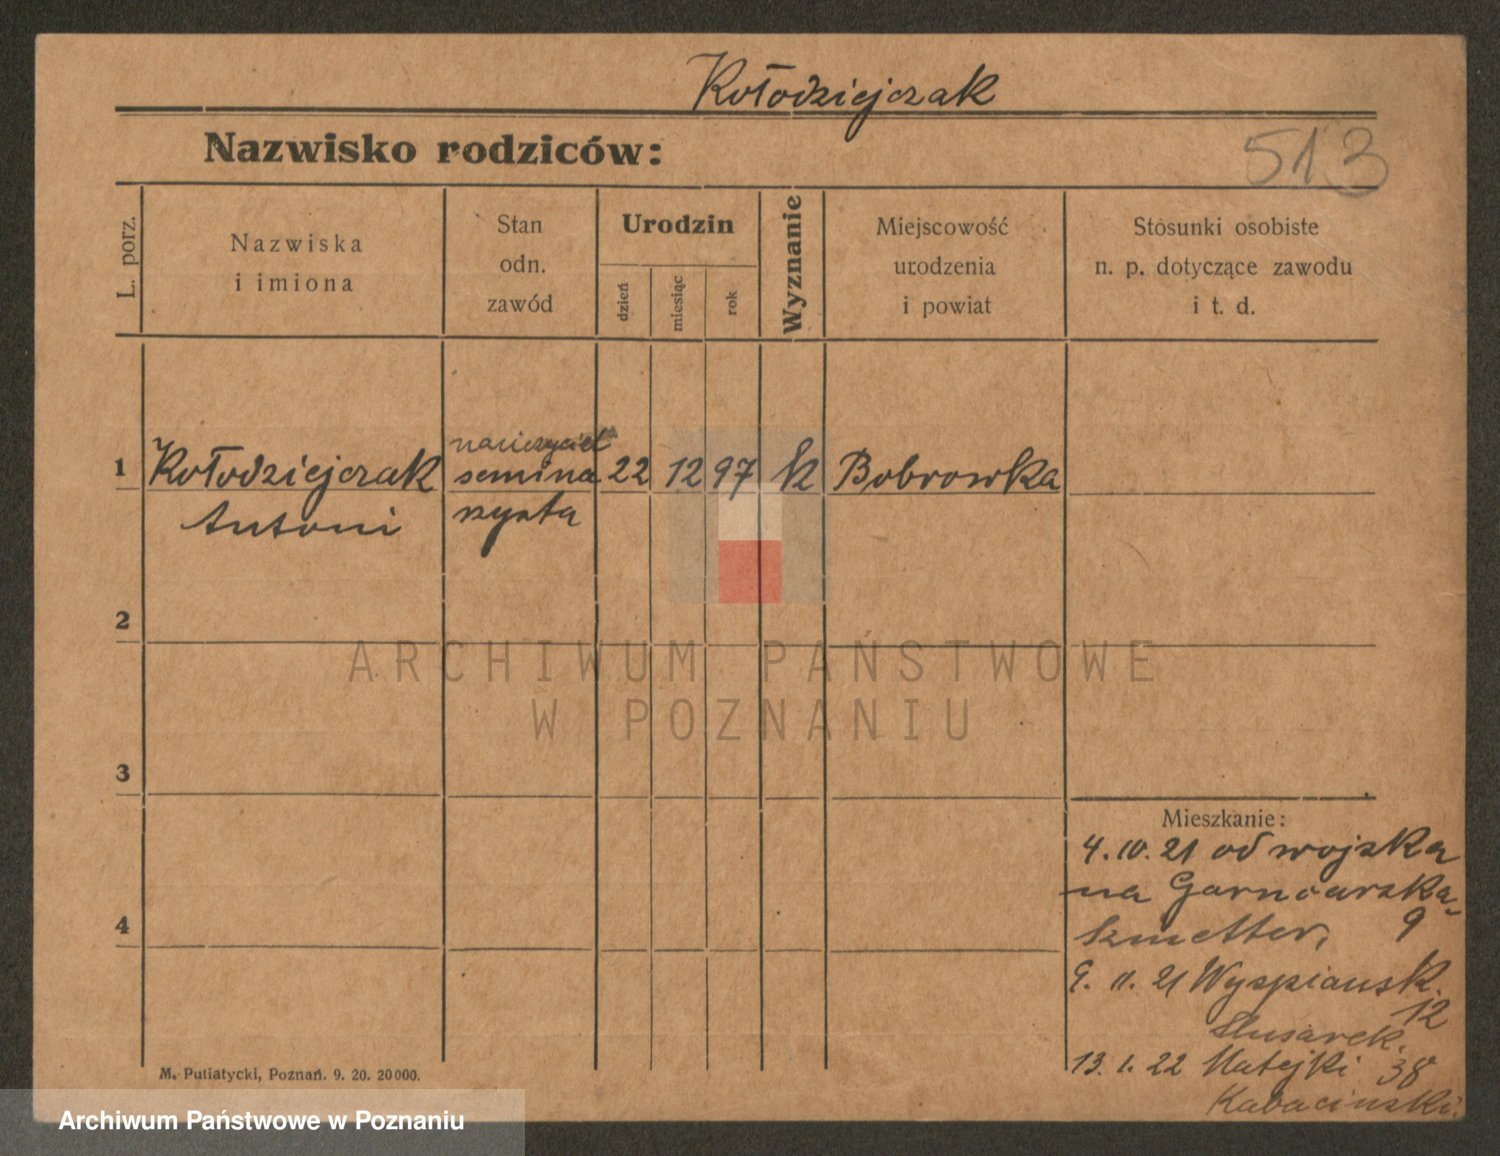 Kołodziejczak
Nazwisko rodziców:
513
L. porz.
Nazwiska
i imiona
Stan
odn.
zawód
Urodzin
dzień
miesiąc
rok
Wyznanie
Miejscowość
urodzenia
i powiat
Stosunki osobiste
n. p. dotyczące zawodu
i t. d.
nauczyciel
1 Kołodziejczak semina 22 12 97 k Bobrowka
Antoni rzysta
2
ARCHIWUM PAŃSTWOWE
W POZNANIU
3
Mieszkanie:
4. 10. 21 od wojska
na Garncarska
9
4
9. 11. 21 Wyspiansk.
12
Slusarek.
13. 1. 22 Matejki 38
Kabacinski
M. Putiatycki, Poznań. 9. 20. 20000.
Archiwum Państwowe w Poznaniu